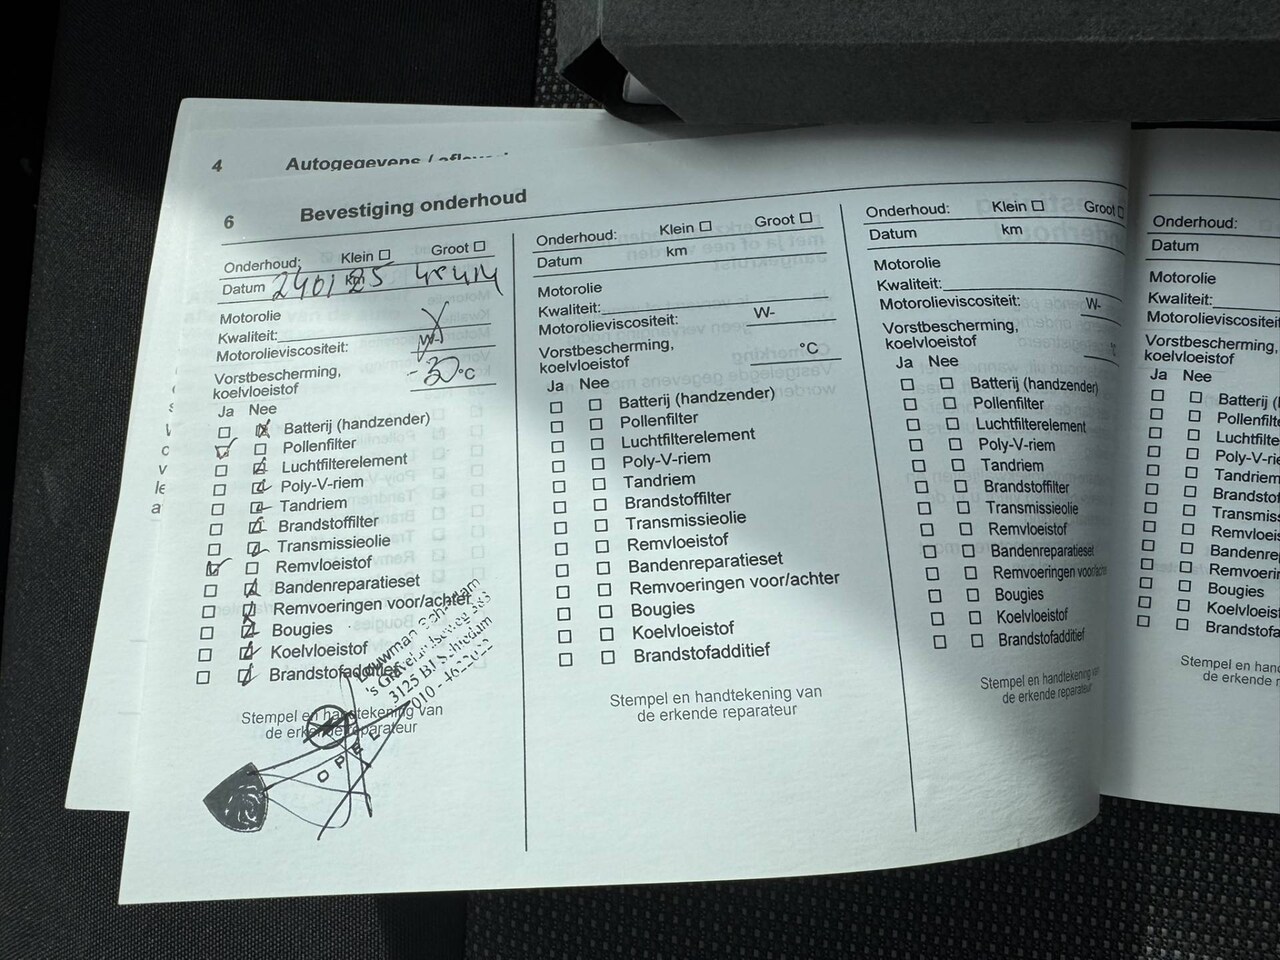 4 Autogegevens /
6 Bevestiging onderhoud
Onderhoud: Klein Groot
Datum 240125 km
Motorolie
Kwaliteit:
Motorolieviscositeit: W-
Vorstbescherming,
koelvloeistof -30 °C
Ja Nee
Batterij (handzender)
Pollenfilter
Luchtfilterelement
Poly-V-riem
Tandriem
Brandstoffilter
Transmissieolie
Remvloeistof
Bandenreparatieset
Remvoeringen voor/achter
Bougies
Koelvloeistof
Brandstofadditief
Stempel en handtekening van
de erkende reparateur
Louwman Schiedam
's Gravelandseweg 383
3125 BJ Schiedam
010 - 4622022
OPEL
Onderhoud: Klein Groot
Datum km
Motorolie
Kwaliteit:
Motorolieviscositeit: W-
Vorstbescherming,
koelvloeistof °C
Ja Nee
Batterij (handzender)
Pollenfilter
Luchtfilterelement
Poly-V-riem
Tandriem
Brandstoffilter
Transmissieolie
Remvloeistof
Bandenreparatieset
Remvoeringen voor/achter
Bougies
Koelvloeistof
Brandstofadditief
Stempel en handtekening van
de erkende reparateur
Onderhoud: Klein Groot
Datum km
Motorolie
Kwaliteit:
Motorolieviscositeit: W-
Vorstbescherming,
koelvloeistof °C
Ja Nee
Batterij (handzender)
Pollenfilter
Luchtfilterelement
Poly-V-riem
Tandriem
Brandstoffilter
Transmissieolie
Remvloeistof
Bandenreparatieset
Remvoeringen voor/achter
Bougies
Koelvloeistof
Brandstofadditief
Stempel en handtekening van
de erkende reparateur
Onderhoud:
Datum
Motorolie
Kwaliteit:
Motorolieviscositeit
Vorstbescherming,
koelvloeistof
Ja Nee
Batterij (h
Pollenfilte
Luchtfilte
Poly-V-rie
Tandriem
Brandstof
Transmiss
Remvloeis
Bandenrep
Remvoerin
Bougies
Koelvloeist
Brandstofa
Stempel en han
de erkende r